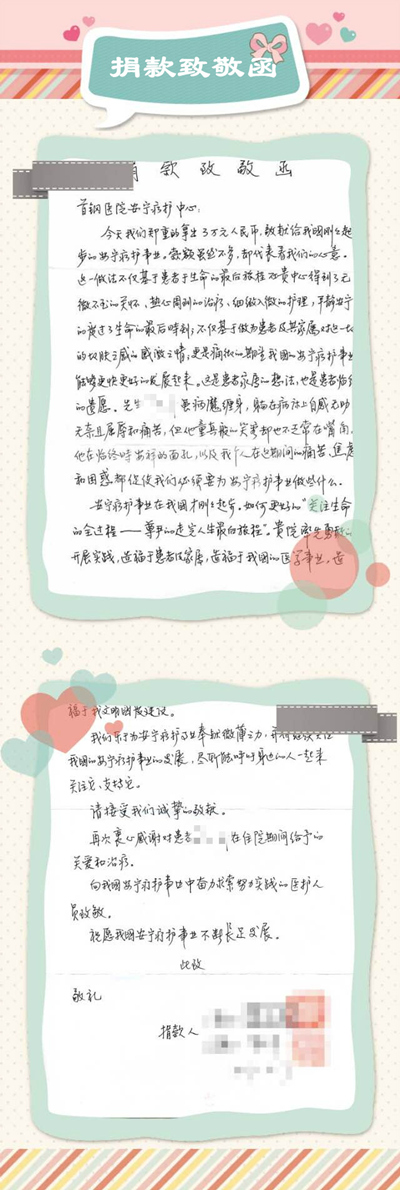 捐款致敬函
款致敬函
首钢医院安宁疗护中心:
今天我们郑重的拿出3万元人民币,敬献给我国刚刚起
步的安宁疗护事业。数额虽然不多,却代表着我们的心意。
这一做法不仅基于患者于生命的最后旅程在贵中心得到了无
微不至的关怀、热心周到的治疗、细致入微的护理,平静安宁
的度过了生命的最后时刻;不仅基于做为患者及其家属对这一切
能够更快更好的发展起来。这是患者家属的想法,也是患者临终
的遗愿。先生 虽病魔缠身,躺在病床上自感无助
他在临终时安祥的面孔,以及我 个人在这期间的痛苦、焦虑
和困惑都促使我们必须要为安宁疗护事业做些什么。
安宁疗护事业在我国才刚刚起步,如何更好的“关注生命
的全过程——尊严的走完人生最后旅程”。贵院率先勇敢的
开展实践,造福于患者及家属,造福于我国的医学事业,造
福于我文明国度建设。
我们乐于为安宁疗护事业奉献微薄之力,并将继续关注
我国的安宁疗护事业的发展,尽所能呼吁身边的人一起来
关注它、支持它。
请接受我们诚挚的敬献。
再次衷心感谢对患者 在住院期间给予的
关爱和治疗。
向我国安宁疗护事业中奋力求索努力实践的医护人
员致敬。
祝愿我国安宁疗护事业不断长足发展。
此致
敬礼
捐款人